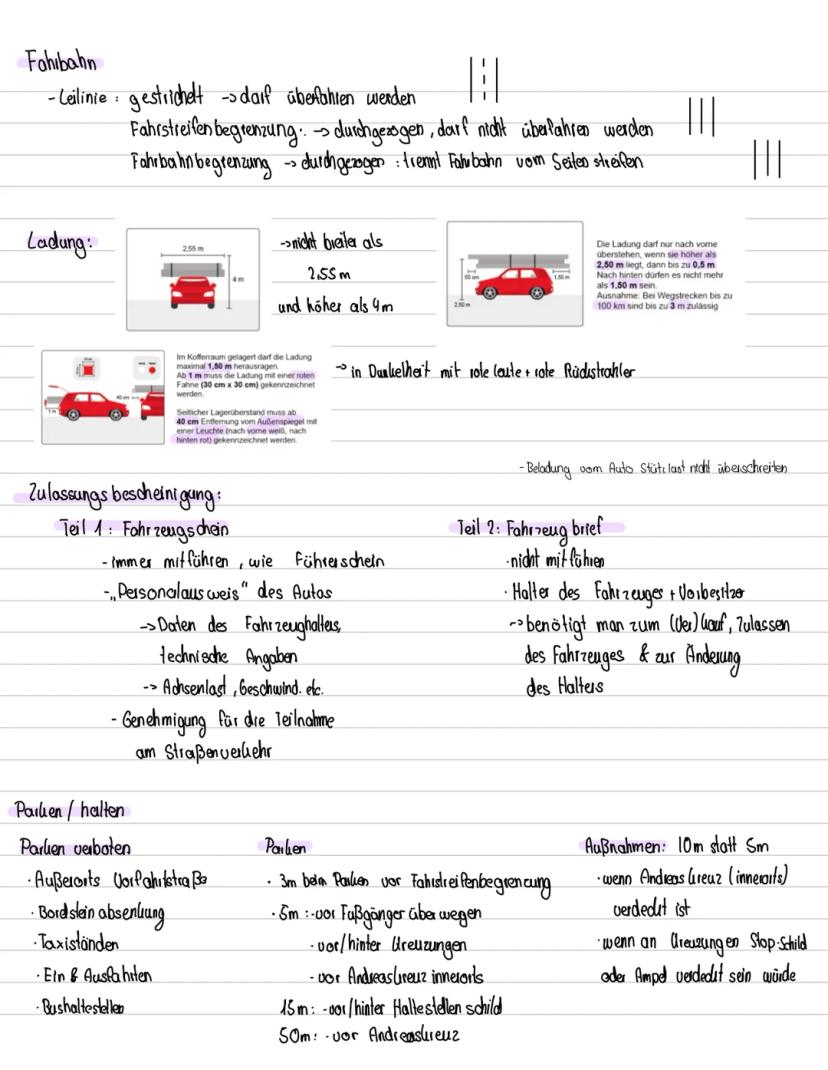 Fahrbahn
- Leilinie : gestrichelt -> darf überfahren werden
Fahrstreifenbegrenzung: -> durchgezogen, darf nicht überfahren werden
Fahrbahnbegrenzung -> durchgezogen : trennt Fahrbahn vom Seitenstreifen
Ladung:
2,55 m
4 m
-> nicht breiter als
2,55m
und höher als 4m
50 cm
1,50 m
2,50 m
Die Ladung darf nur nach vorne
überstehen, wenn sie höher als
2,50 m liegt, dann bis zu 0,5 m.
Nach hinten dürfen es nicht mehr
als 1,50 m sein.
Ausnahme: Bei Wegstrecken bis zu
100 km sind bis zu 3 m zulässig
40 cm
1 m
Im Kofferraum gelagert darf die Ladung
maximal 1,50 m herausragen.
Ab 1 m muss die Ladung mit einer roten
Fahne (30 cm x 30 cm) gekennzeichnet
werden.
Seitlicher Lagerüberstand muss ab
40 cm Entfernung vom Außenspiegel mit
einer Leuchte (nach vorne weiß, nach
hinten rot) gekennzeichnet werden.
-> in Dunkelheit mit rote leute + rote Rückstrahler
- Beladung vom Auto Stützlast nicht überschreiten
Zulassungsbescheinigung:
Teil 1: Fahrzeugschein
- immer mitführen, wie Führerschein
- „Personalausweis" des Autos
-> Daten des Fahrzeughalters,
technische Angaben
-> Achsenlast, Geschwind. etc.
- Genehmigung für die Teilnahme
am Straßenverkehr
Teil 2: Fahrzeugbrief
· nicht mitführen
· Halter des Fahrzeuges + Vorbesitzer
-> benötigt man zum (Ver)kauf, Zulassen
des Fahrzeuges & zur Änderung
des Halters
Parken / halten
Parken verboten
· Außerorts Vorfahrtstraße
· Bordsteinabsenkung
· Taxiständen
· Ein & Ausfahrten
· Bushaltestellen
Parken
· 3m beim Parken vor Fahrstreifenbegrenzung
· 5m : - vor Fußgängerüberwegen
- vor/hinter Kreuzungen
- vor Andreaskreuz innerorts
15m: - vor/hinter Haltestellenschild
50m: - vor Andreaskreuz
Außnahmen: 10m statt 5m
· wenn Andreaskreuz (innerorts)
verdeckt ist
· wenn an Kreuzungen Stop-Schild
oder Ampel verdeckt sein würde